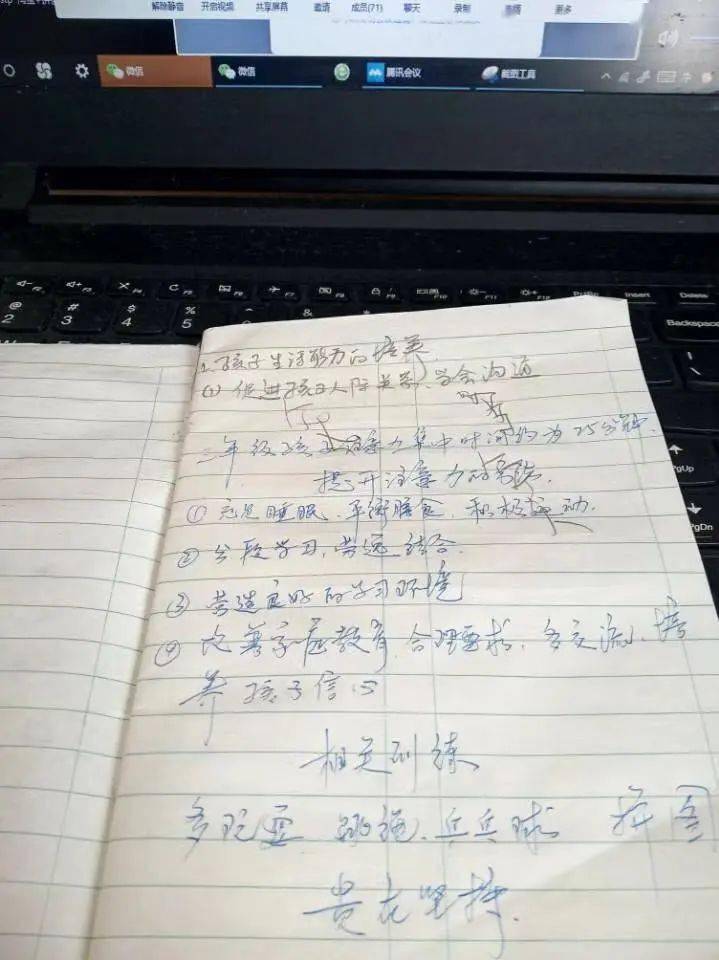 解除静音 开启视频 共享屏幕 邀请 成员(71) 聊天 录制 表情 更多
微信 微信 腾讯会议 截图工具
F2 F3 F4 F5 F6 F7 F8 F9 F10 F11 F12 Insert Delete
@ # $ % & Backspace
2 3 4 5
PgUp
PgDn
2、孩子生活能力的培养
(2) 促进孩子人际关系、学会沟通
三年级孩子注意力集中时间约为25分钟.
提升注意力的
① 充足睡眠、平衡膳食、积极运动.
② 分段学习,劳逸结合.
③ 营造良好的学习环境
④ 改善家庭教育、合理要求、多交流、培
养孩子信心
相关训练
多 跳绳、乒乓球 拼图
贵在坚持.